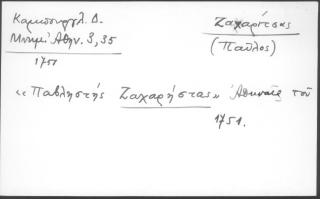 Καμπούρογλ. Δ.
Μνημεῖ Ἀθην. 3, 35
1751
Ζαχαρίτσας
(Παῦλος)
«Παβληστής Ζαχαρήστας» Ἀθηναῖς τοῦ
1751.